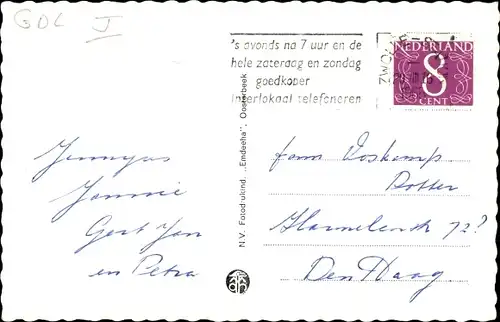 GDL I
's avonds na 7 uur en de
hele zaterdag en zondag
goedkoper
interlokaal telefoneren
ZWOLLE-S
NEDERLAND
8
CENT
N.V. Fotodrukind. „Emdeeha", Oosterbeek
Jannie
Gert Jan
en Petra
fam Voskamp
72?
Den Haag.